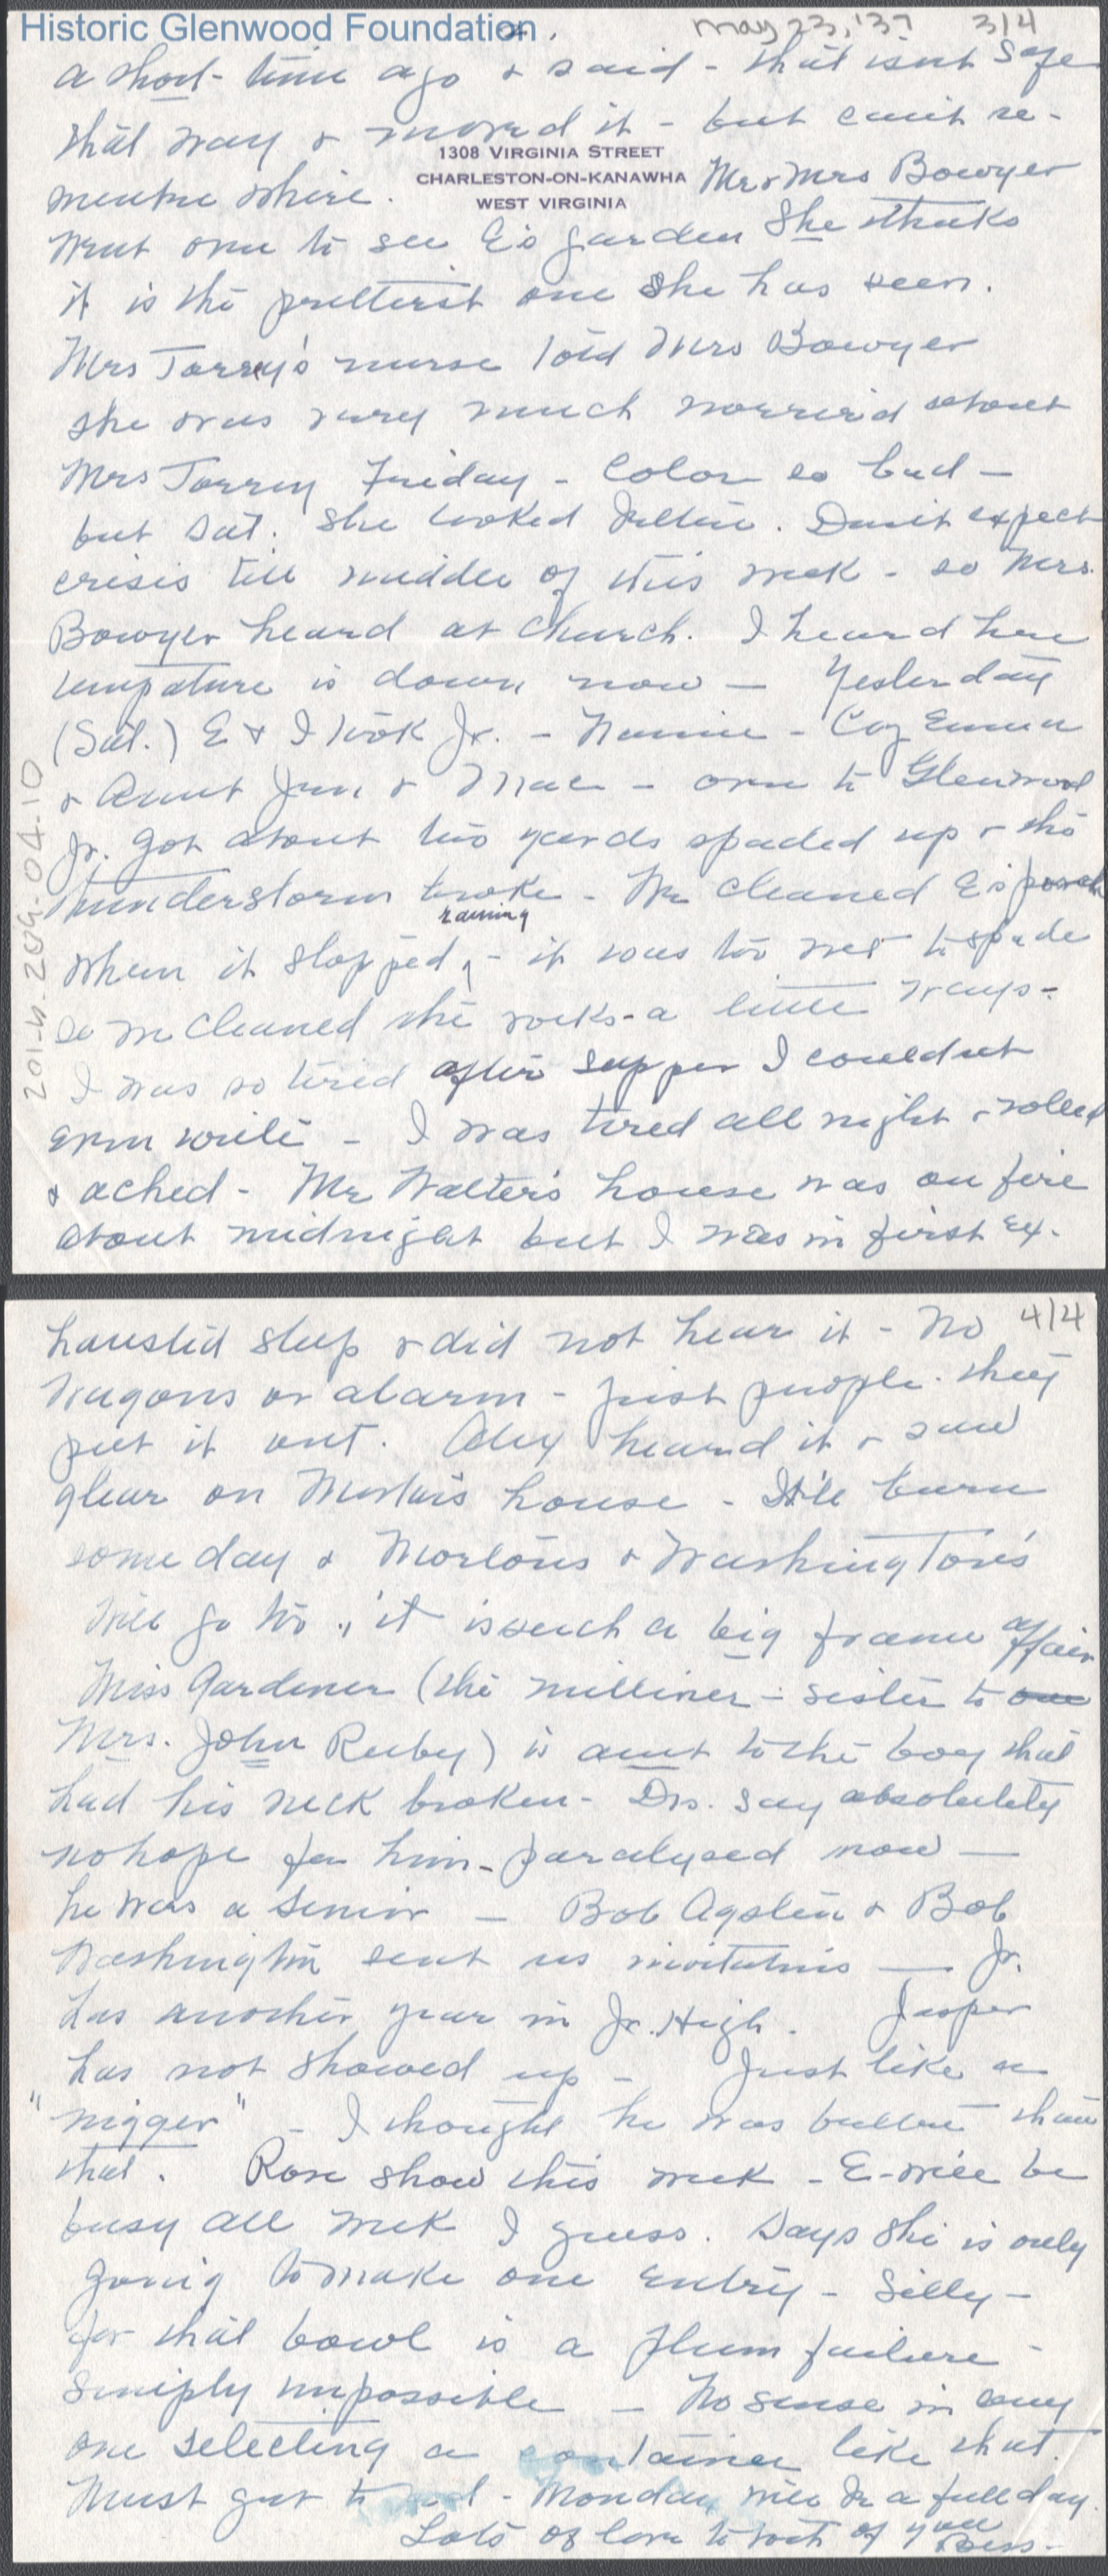 Historic Glenwood Foundation
May 23, '37 3/4
a short time ago & said - that isn't safe
that way & moved it - but can't re-
1308 VIRGINIA STREET
CHARLESTON-ON-KANAWHA
WEST VIRGINIA
member where. Mr & Mrs Bowyer
went over to see E's garden She thinks
it is the prettiest one she has seen.
Mrs Torrey's nurse told Mrs Bowyer
she was very much worried about
Mrs Torrey Friday - Color so bad -
but Sat. she looked better. Don't expect
crisis till middle of this week - so Mrs.
Bowyer heard at Church. I heard her
tempature is down now - Yesterday
(Sat.) E & I took Jr. - Nannie - Coz Emma
& Aunt Jen & Mac - over to Glenwood
Jr. got about two yards spaded up & the
thunderstorm broke - We cleaned E's porch
when it stopped raining - it was too wet to spade
so we cleaned the rocks - a little ways -
I was so tired after supper I couldn't
even write - I was tired all night & rolled
& ached - Mr Walter's house was on fire
about midnight but I was in first ex-
201-4.209-04.10
4/4
hausted sleep & did not hear it - No
wagons or alarm - just people. they
put it out. Alex heard it & saw
glear on Morton's house - It'll burn
some day & Morton's & Washington's
will go too, it is such a big frame affair
Miss Gardener (the milliner - sister to
Mrs. John Ruby) is aunt to the boy that
had his neck broken - Drs. say absolutely
no hope for him - paralyzed now -
he was a senior - Bob Agsten & Bob
Washington sent us invitations - Jr.
has another year in Jr. High. Jasper
has not showed up - Just like a
"nigger" - I thought he was better than
that. Rose show this week - E - will be
busy all week I guess. Says she is only
going to make one entry - Silly -
for that bowl is a plum failure -
simply impossible - No sense in any
one selecting a container like that.
Must get to bed - Monday will be a full day.
Lots of love to both of you
Bess -